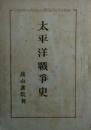 太平洋戰爭史
高山書院刊